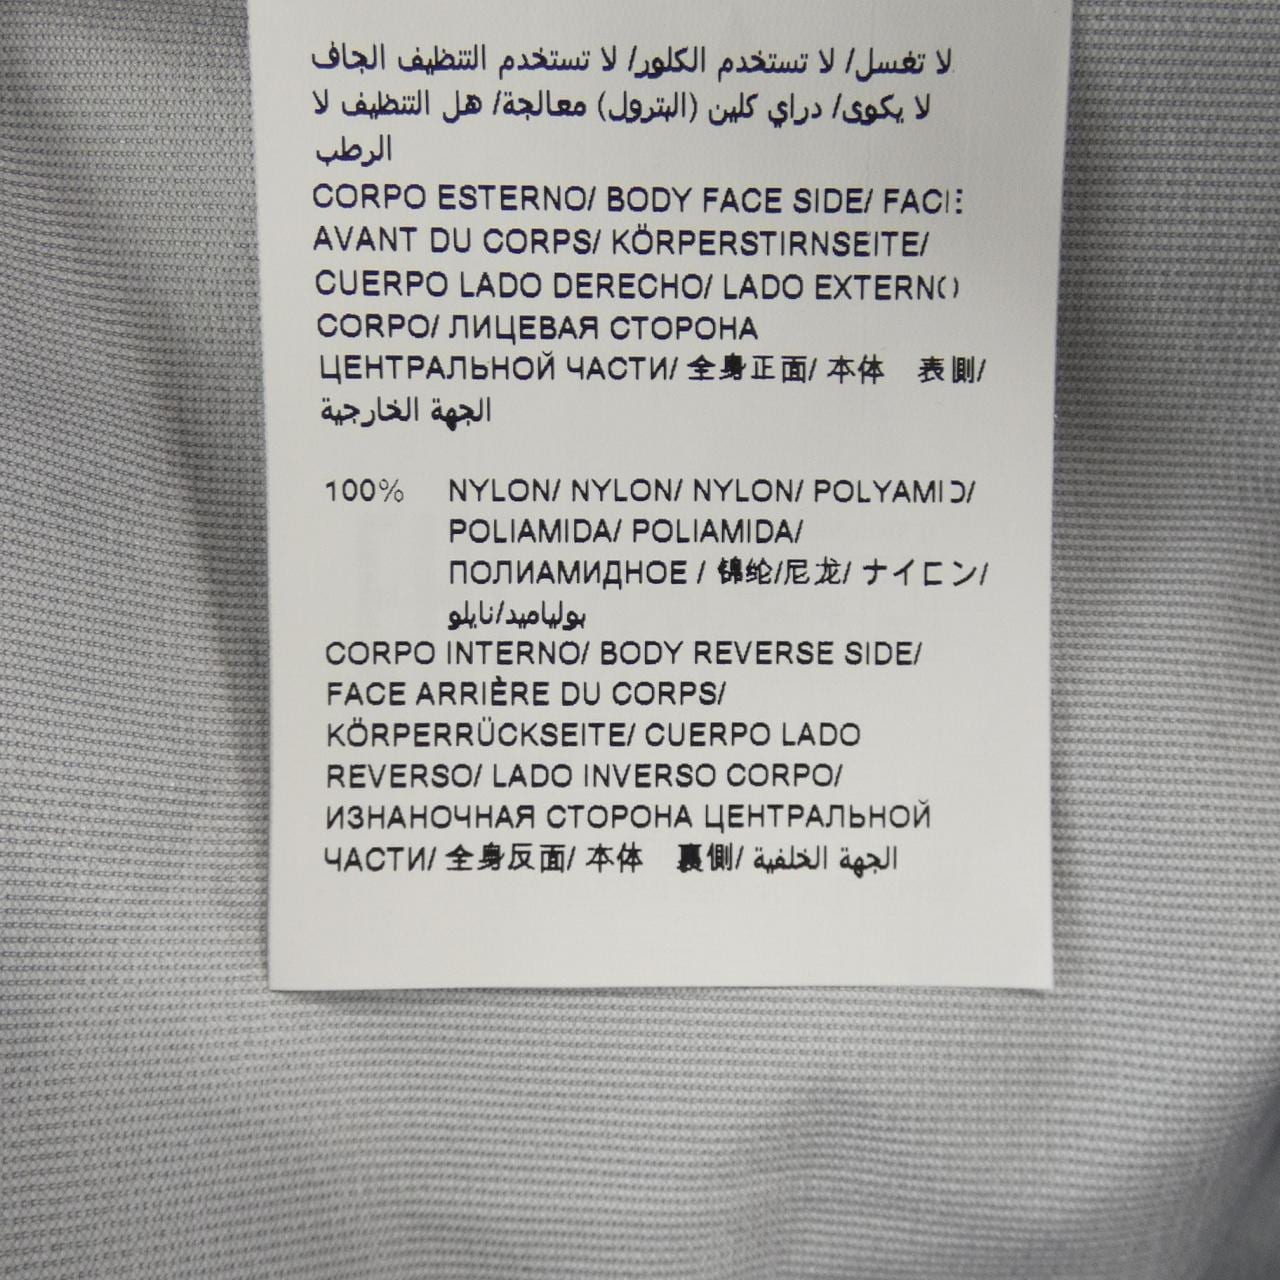 لا تغسل/ لا تستخدم الكلور/ لا تستخدم التنظيف الجاف
لا يكوى/ دراي كلين (البترول) معالجة/ هل التنظيف لا
الرطب
CORPO ESTERNO/ BODY FACE SIDE/ FACE
AVANT DU CORPS/ KÖRPERSTIRNSEITE/
CUERPO LADO DERECHO/ LADO EXTERNO
CORPO/ ЛИЦЕВАЯ СТОРОНА
ЦЕНТРАЛЬНОЙ ЧАСТИ/ 全身正面/ 本体　表側/
الجهة الخارجية
100% NYLON/ NYLON/ NYLON/ POLYAMID/
POLIAMIDA/ POLIAMIDA/
ПОЛИАМИДНОЕ / 锦纶/尼龙/ ナイロン/
بولياميد/نايلو
CORPO INTERNO/ BODY REVERSE SIDE/
FACE ARRIÈRE DU CORPS/
KÖRPERRÜCKSEITE/ CUERPO LADO
REVERSO/ LADO INVERSO CORPO/
ИЗНАНОЧНАЯ СТОРОНА ЦЕНТРАЛЬНОЙ
ЧАСТИ/ 全身反面/ 本体　裏側/ الجهة الخلفية